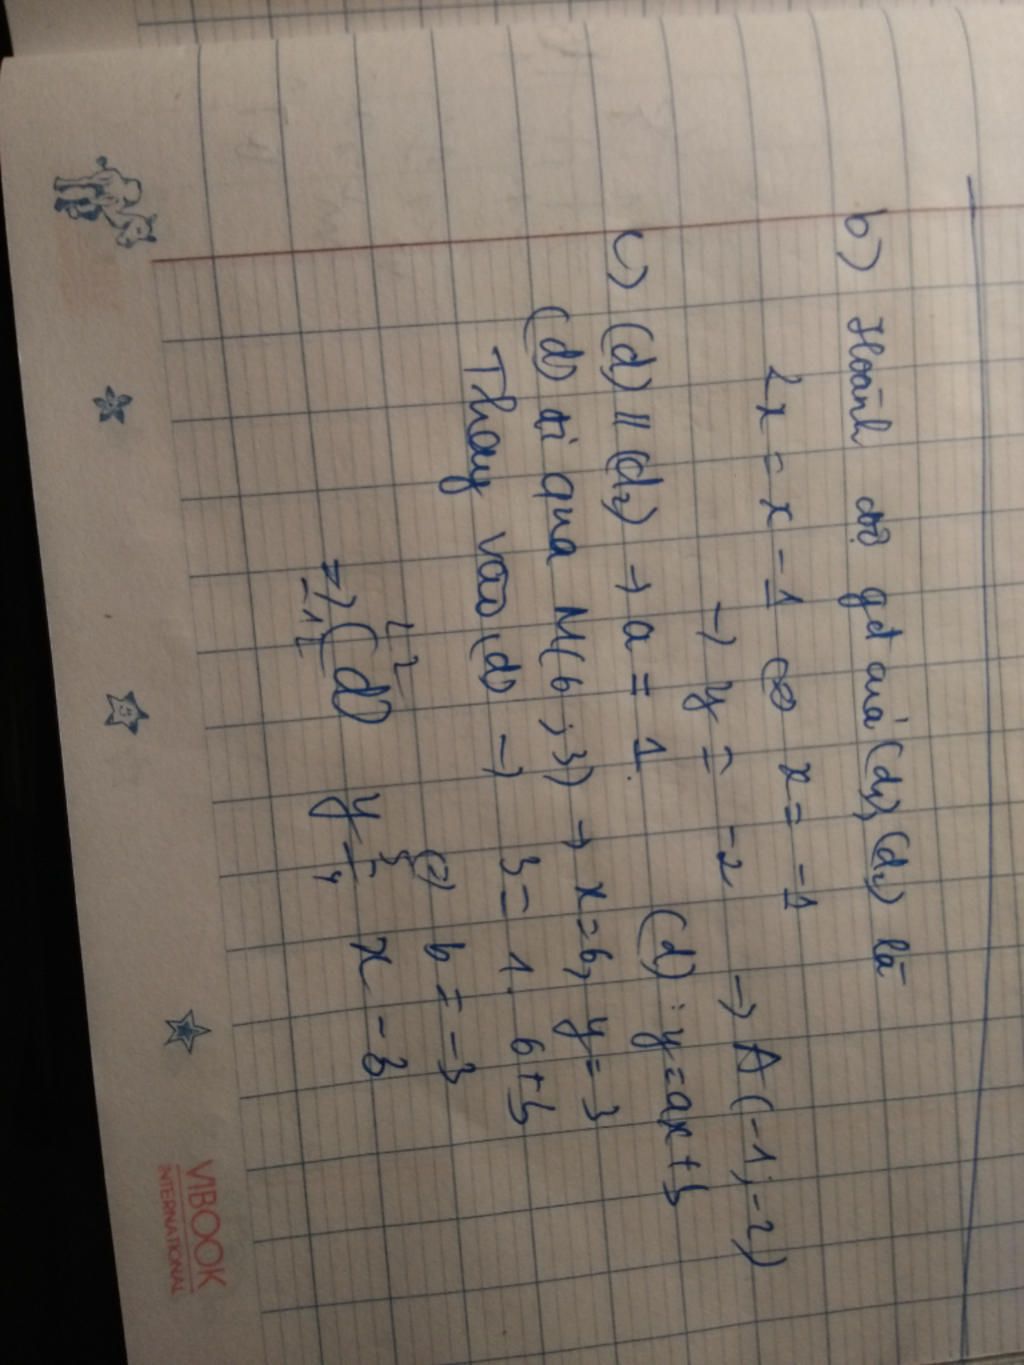 b) Hoành độ gđ của (d1), (d2) là
2x = x - 1 ⇔ x = -1
→ y = -2 → A(-1; -2)
c) (d) // (d2) → a = 1. (d): y = ax + b
(d) đi qua M(6; 3) → x = 6, y = 3
Thay vào (d) → 3 = 1. 6 + b
⇔ b = -3
(d) y = x - 3
VIBOOK
INTERNATIONAL